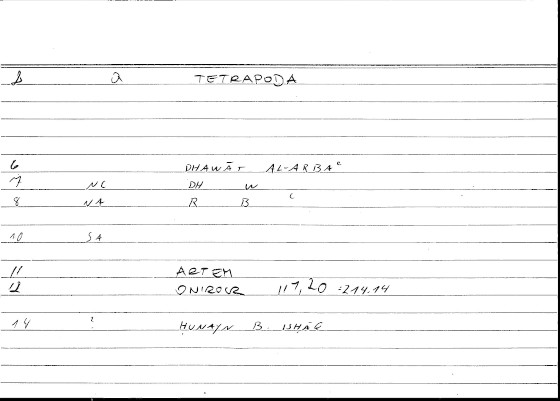 1 a TETRAPODA
6 DHAWĀT AL-ARBAʿ
7 NC DH W
8 NA R B ʿ
10 SA
11 ARTEM
12 ONIROCR 117,20 =214.14
14 ? ḤUNAYN B. ISḤĀḲ